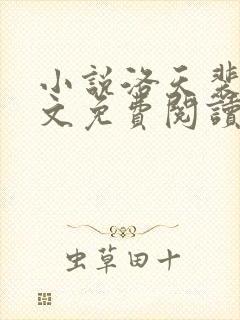 小說洛天裴
文免費閱讀
虫草田十